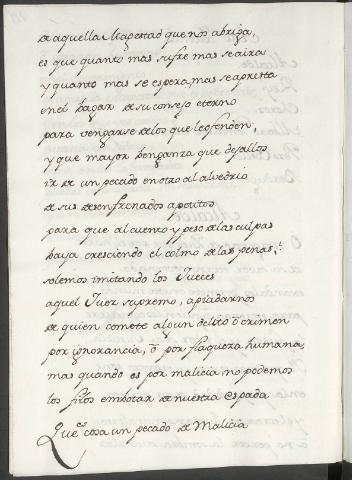 de aquella Magestad que nos abriga,
es que quanto mas sufre mas se aira
y quanto mas se espera, mas se apresta
en el lugar de su consejo eterno
para vengarse de los que le ofenden;
y que mayor benganza que dejallos
ir de un pecado en otro al alvedrio
de sus desenfrenados apetitos
para que al cuento y peso de las culpas
baya cresciendo el colmo de las penas,
solemos imitando los Jueces
aquel Juez supremo, apiadarnos
de quien comete algun delito ò crimen
por ignorancia, ò por flaqueza humana,
mas quando es por malicia no podemos
los filos embotar de nuestra espada
Que es cosa un pecado de Malicia